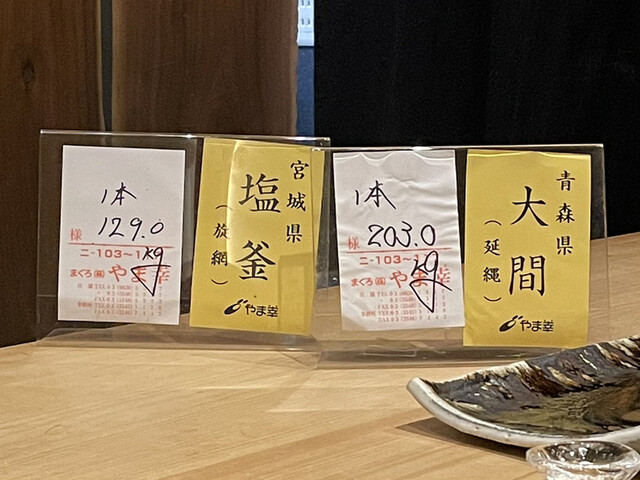 1本
129.0
kg
様
ニ-103~1
まぐろ㈱やま幸
宮城県
塩釜
(旋網)
やま幸
1本
203.0
kg
様
ニ-103~1
まぐろ㈱やま幸
青森県
大間
(延縄)
やま幸